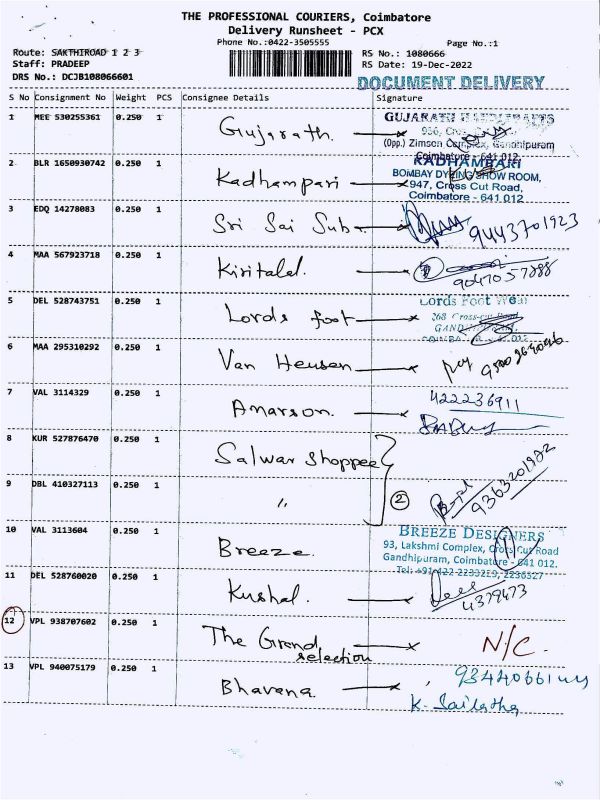 THE PROFESSIONAL COURIERS, Coimbatore
Delivery Runsheet - PCX
Phone No.:0422-3505555
Page No.:1
Route: SAKTHIROAD 1 2 3
RS No.: 1080666
Staff: PRADEEP
RS Date: 19-Dec-2022
DRS No.: DCJB108066601
DOCUMENT DELIVERY
S No Consignment No Weight PCS Consignee Details Signature
1 MEE 530255361 0.250 1 Gujarath.
GUJARATH
956, Cross
(Opp.) Zimson Complex, Gandhipuram
Coimbatore - 641 012
2 BLR 1650930742 0.250 1 Kadhampari
KADHAMBARI
BOMBAY DYEING SHOW ROOM,
947, Cross Cut Road,
Coimbatore - 641 012
3 EDQ 14278083 0.250 1 Sri Sai Sub 9443701923
4 MAA 567923718 0.250 1 Kiritalal.
5 DEL 528743751 0.250 1 Lords foot
Lords Foot Wear
268 Cross-cut Road
6 MAA 295310292 0.250 1 Van Heusen
7 VAL 3114329 0.250 1 Amarson. 422236911
8 KUR 527876470 0.250 1 Salwar Shoppee
9 DBL 410327113 0.250 1 " 2 9363201982
10 VAL 3113604 0.250 1 Breeze.
BREEZE DESIGNERS
93, Lakshmi Complex, Cross Cut Road
Gandhipuram, Coimbatore - 641 012.
Tel: +91 422 2233229, 2236527
11 DEL 528760020 0.250 1 Kushal. 4379473
12 VPL 938707602 0.250 1 The Grand N/C.
selection
13 VPL 940075179 0.250 1 Bhavana.
K. Sailatha